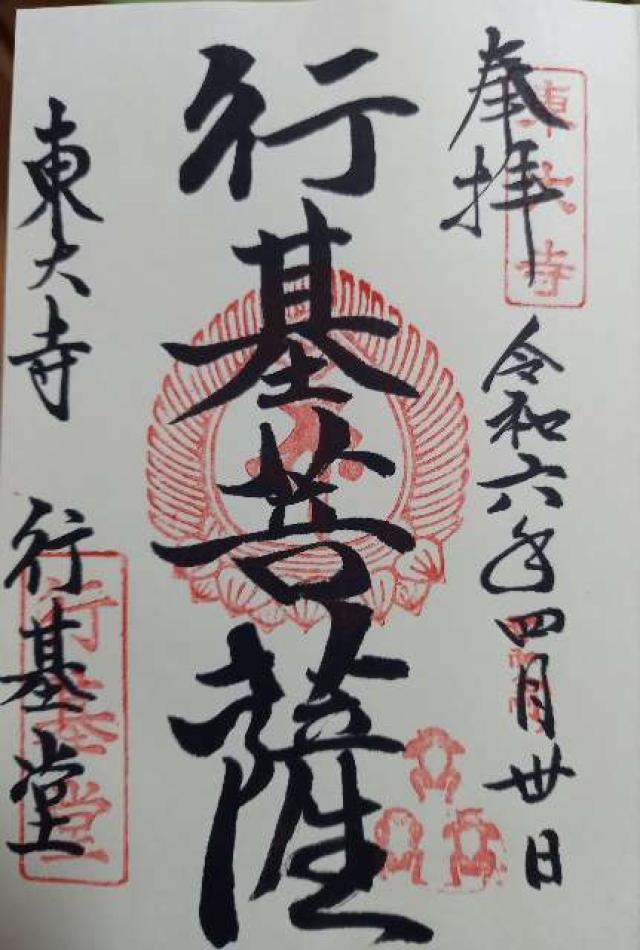 奉拝
東大寺
令和六年四月卅日
行基菩薩
東大寺 行基堂
行基堂